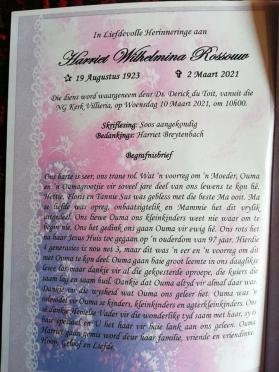 In Liefdevolle Herinneringe aan
Harriet Wilhelmina Rossouw
✰ 19 Augustus 1923 ✞ 2 Maart 2021
Die diens word waargeneem deur Ds. Derick du Toit, vanuit die
NG Kerk Villieria, op Woensdag 10 Maart 2021, om 10h00.
Skriflesing: Soos aangekondig
Bedankings: Harriet Breytenbach
Begrafnisbrief
Ons harte is seer, ons trane rol. Wat 'n voorreg om 'n Moeder, Ouma
en Oumagrootjie vir soveel jare deel van ons lewens te kon hê.
Hettie, Floris en Tannie Sus was gebless met die beste Ma ooit. Ma
se liefde was opreg, onbaatsigtelik en Mammie het dit vrylik
uitgedeel. Ons liewe Ouma ons kleinkinders weet nie waar om te
begin nie. Ons het gedink ons gaan Ouma vir ewig hê. Ons rots het
na haar Jesus Huis toe gegaan op 'n ouderdom van 97 jaar. Hierdie
4 generasies is nou net 3, maar dit was 'n eer en 'n voorreg om dit
met Ouma te kon deel. Ouma gaan baie groot leemte in ons daaglikse
lewe los maar dankie vir al die gekosperde oproepe, die kuiers die
saam lag en saam huil. Dankie dat Ouma altyd vir almal daar was.
Dankie vir die wysheid wat Ouma ons geleer het. Ouma was 'n
vir Ouma se kinders, kleinkinders en agterkleinkinders. Ons
dankie Hemelse Vader vir die wonderlike tyd saam met haar, sy
baie spesiaal en U het haar vir baie lank aan ons geleen. Ouma
Harriet gaan gemis word deur haar familie, vriende en vriendinne.
Hoop, Geloof en Liefde.